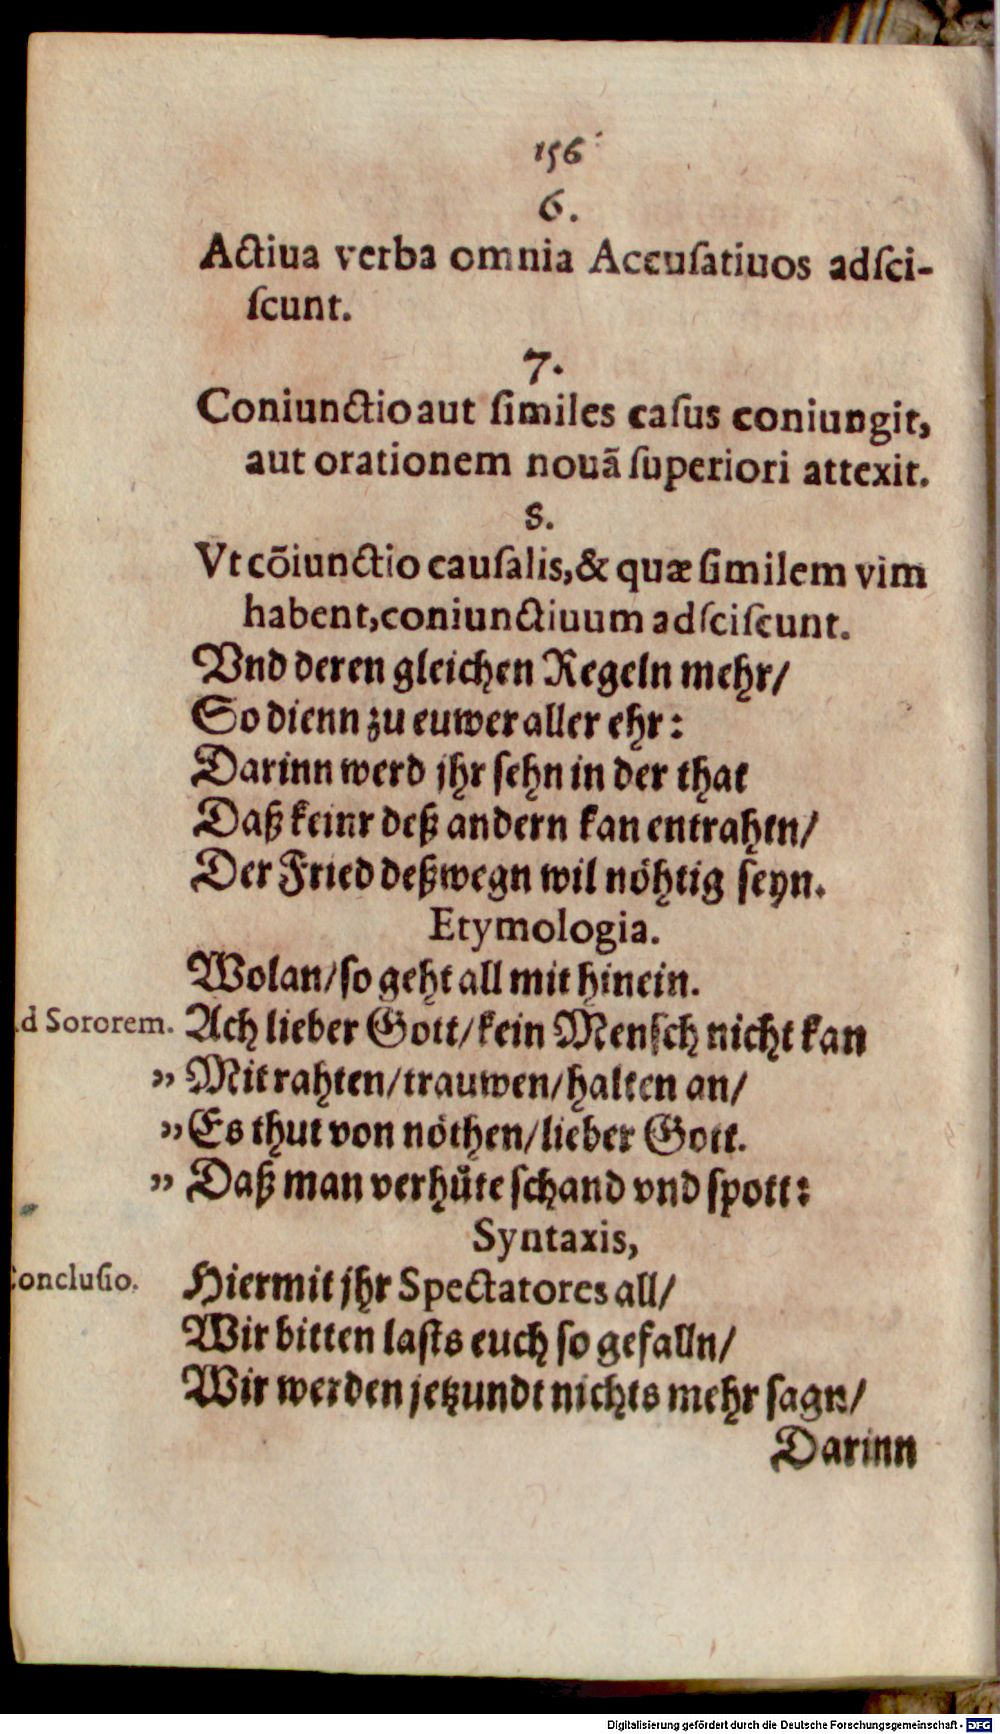 156
6.
Actiua verba omnia Accusatiuos adsci-
scunt.
7.
Coniunctio aut similes casus coniungit,
aut orationem nouã superiori attexit.
8.
Vt cõiunctio causalis, & quæ similem vim
habent, coniunctiuum adsciscunt.
Vnd deren gleichen Regeln mehr/
So dienn zu euwer aller ehr:
Darinn werd jhr sehn in der that
Daß keinr deß andern kan entrahtn/
Der Fried deßwegn wil nöhtig seyn.
Etymologia.
Wolan/ so geht all mit hinein.
d Sororem. Ach lieber Gott/ kein Mensch nicht kan
„ Mit rahten/ trauwen/ halten an/
„ Es thut von nöthen/ lieber Gott.
„ Daß man verhüte schand vnd spott:
Syntaxis,
onclusio. Hiermit jhr Spectatores all/
Wir bitten lasts euch so gefalln/
Wir werden jetzundt nichts mehr sagn/
Darinn
Digitalisierung gefördert durch die Deutsche Forschungsgemeinschaft - DFG